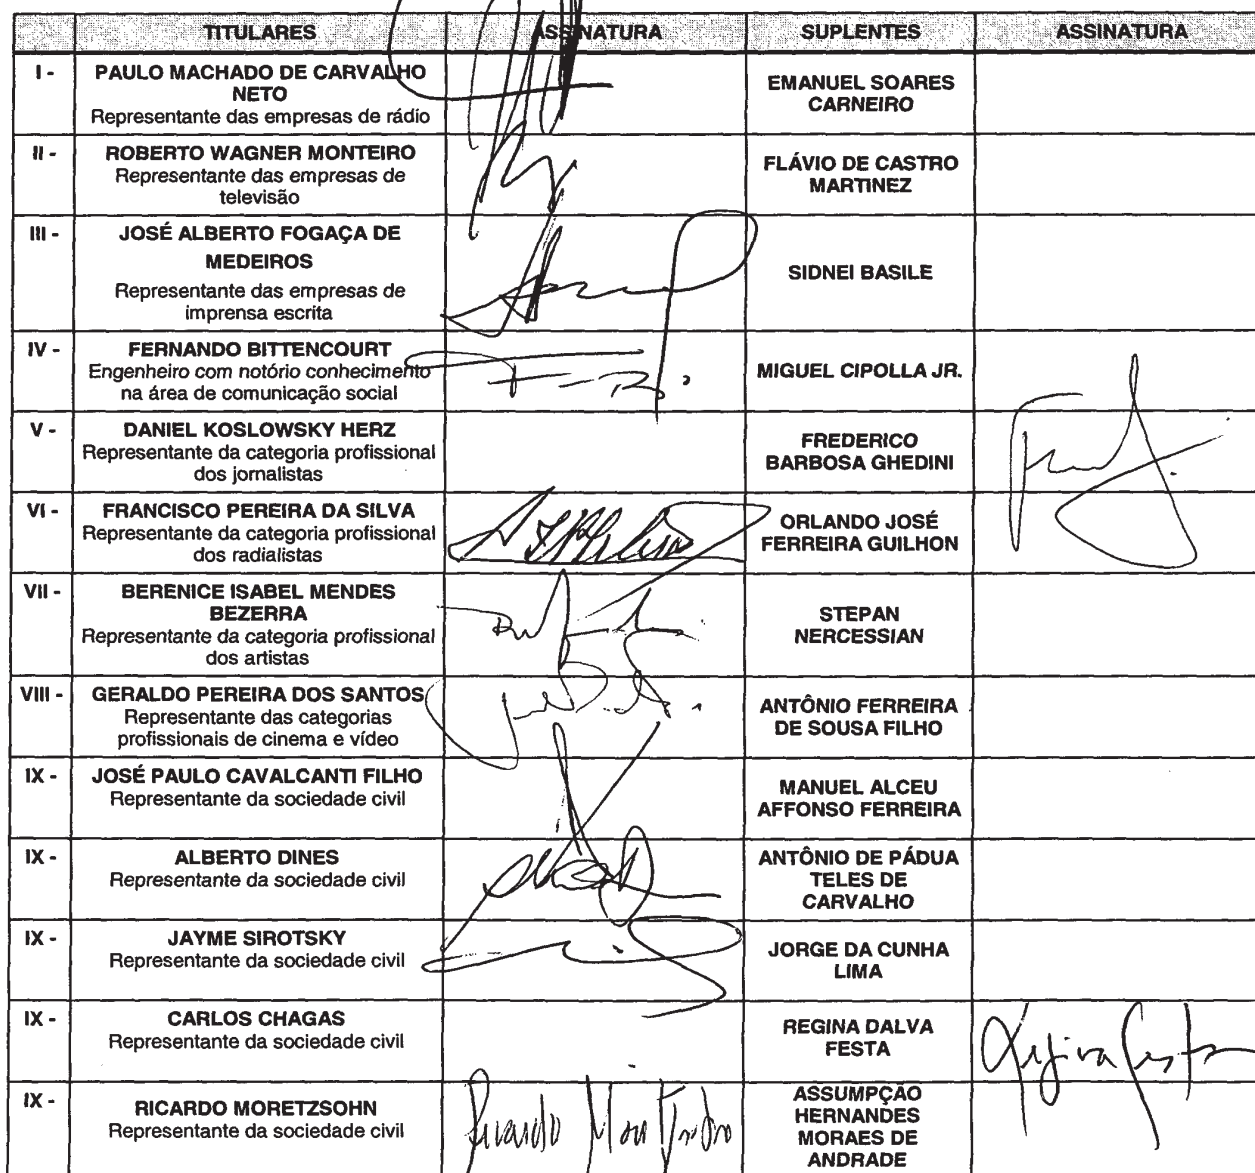 TITULARES ASSINATURA SUPLENTES ASSINATURA
I - PAULO MACHADO DE CARVALHO
NETO
Representante das empresas de rádio
EMANUEL SOARES
CARNEIRO
II - ROBERTO WAGNER MONTEIRO
Representante das empresas de
televisão
FLÁVIO DE CASTRO
MARTINEZ
III - JOSÉ ALBERTO FOGAÇA DE
MEDEIROS
Representante das empresas de
imprensa escrita
SIDNEI BASILE
IV - FERNANDO BITTENCOURT
Engenheiro com notório conhecimento
na área de comunicação social
MIGUEL CIPOLLA JR.
V - DANIEL KOSLOWSKY HERZ
Representante da categoria profissional
dos jornalistas
FREDERICO
BARBOSA GHEDINI
VI - FRANCISCO PEREIRA DA SILVA
Representante da categoria profissional
dos radialistas
ORLANDO JOSÉ
FERREIRA GUILHON
VII - BERENICE ISABEL MENDES
BEZERRA
Representante da categoria profissional
dos artistas
STEPAN
NERCESSIAN
VIII - GERALDO PEREIRA DOS SANTOS
Representante das categorias
profissionais de cinema e vídeo
ANTÔNIO FERREIRA
DE SOUSA FILHO
IX - JOSÉ PAULO CAVALCANTI FILHO
Representante da sociedade civil
MANUEL ALCEU
AFFONSO FERREIRA
IX - ALBERTO DINES
Representante da sociedade civil
ANTÔNIO DE PÁDUA
TELES DE
CARVALHO
IX - JAYME SIROTSKY
Representante da sociedade civil
JORGE DA CUNHA
LIMA
IX - CARLOS CHAGAS
Representante da sociedade civil
REGINA DALVA
FESTA
Regina Festa
IX - RICARDO MORETZSOHN
Representante da sociedade civil
Ricardo
ASSUMPÇÃO
HERNANDES
MORAES DE
ANDRADE